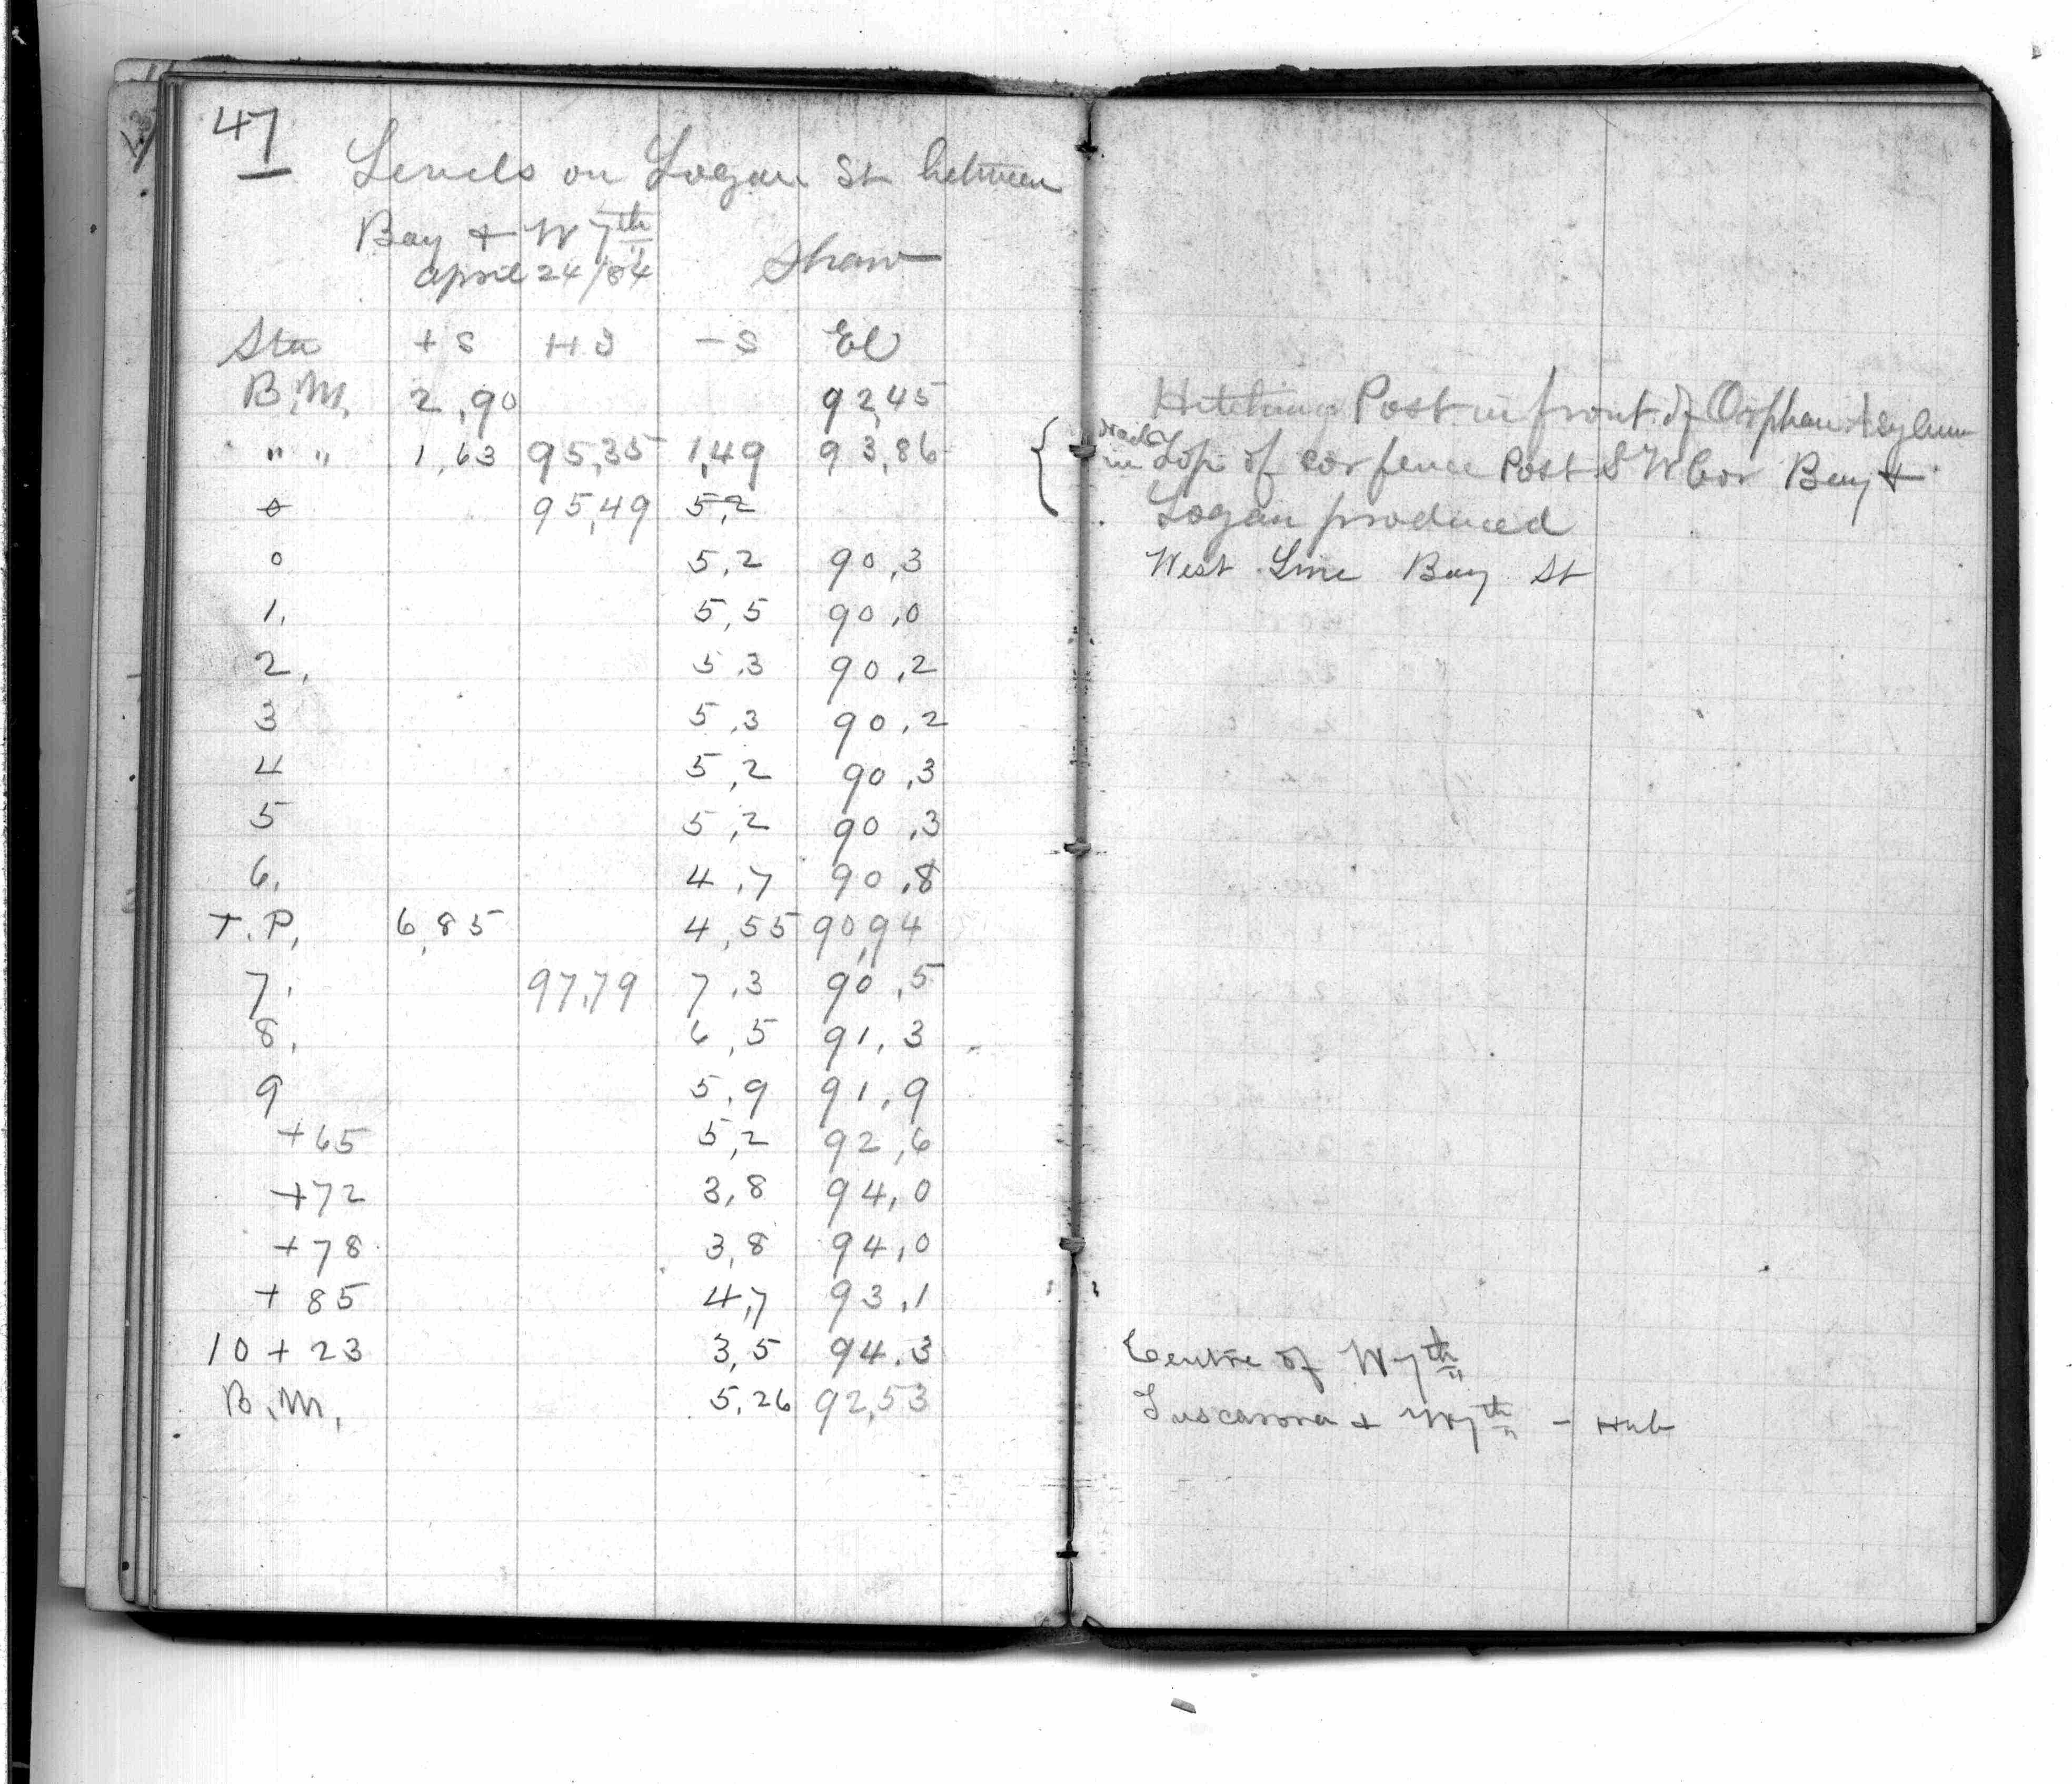 47
Levels on Logan St between
Bay + W 7th
April 24/84 Shaw
Sta +S HS -S El
B.M. 2,90 92,45 Hitching Post in front of Orphan Asylum
" " 1,63 95,35 1,49 93,86 Nail in Top of cor fence Post S W Cor Bay +
0 95,49 5,2 Logan produced
0 5,2 90,3 West Line Bay St
1, 5,5 90,0
2, 5,3 90,2
3 5,3 90,2
4 5,2 90,3
5 5,2 90,3
6, 4,7 90,8
T.P, 6,85 4,55 90,94
7, 97,79 7,3 90,5
8, 6,5 91,3
9 5,9 91,9
+65 5,2 92,6
+72 3,8 94,0
+78 3,8 94,0
+85 4,7 93,1
10+23 3,5 94,3 Centre of W 7th
B.M, 5,26 92,53 Tuscarora + W 7th - Hub